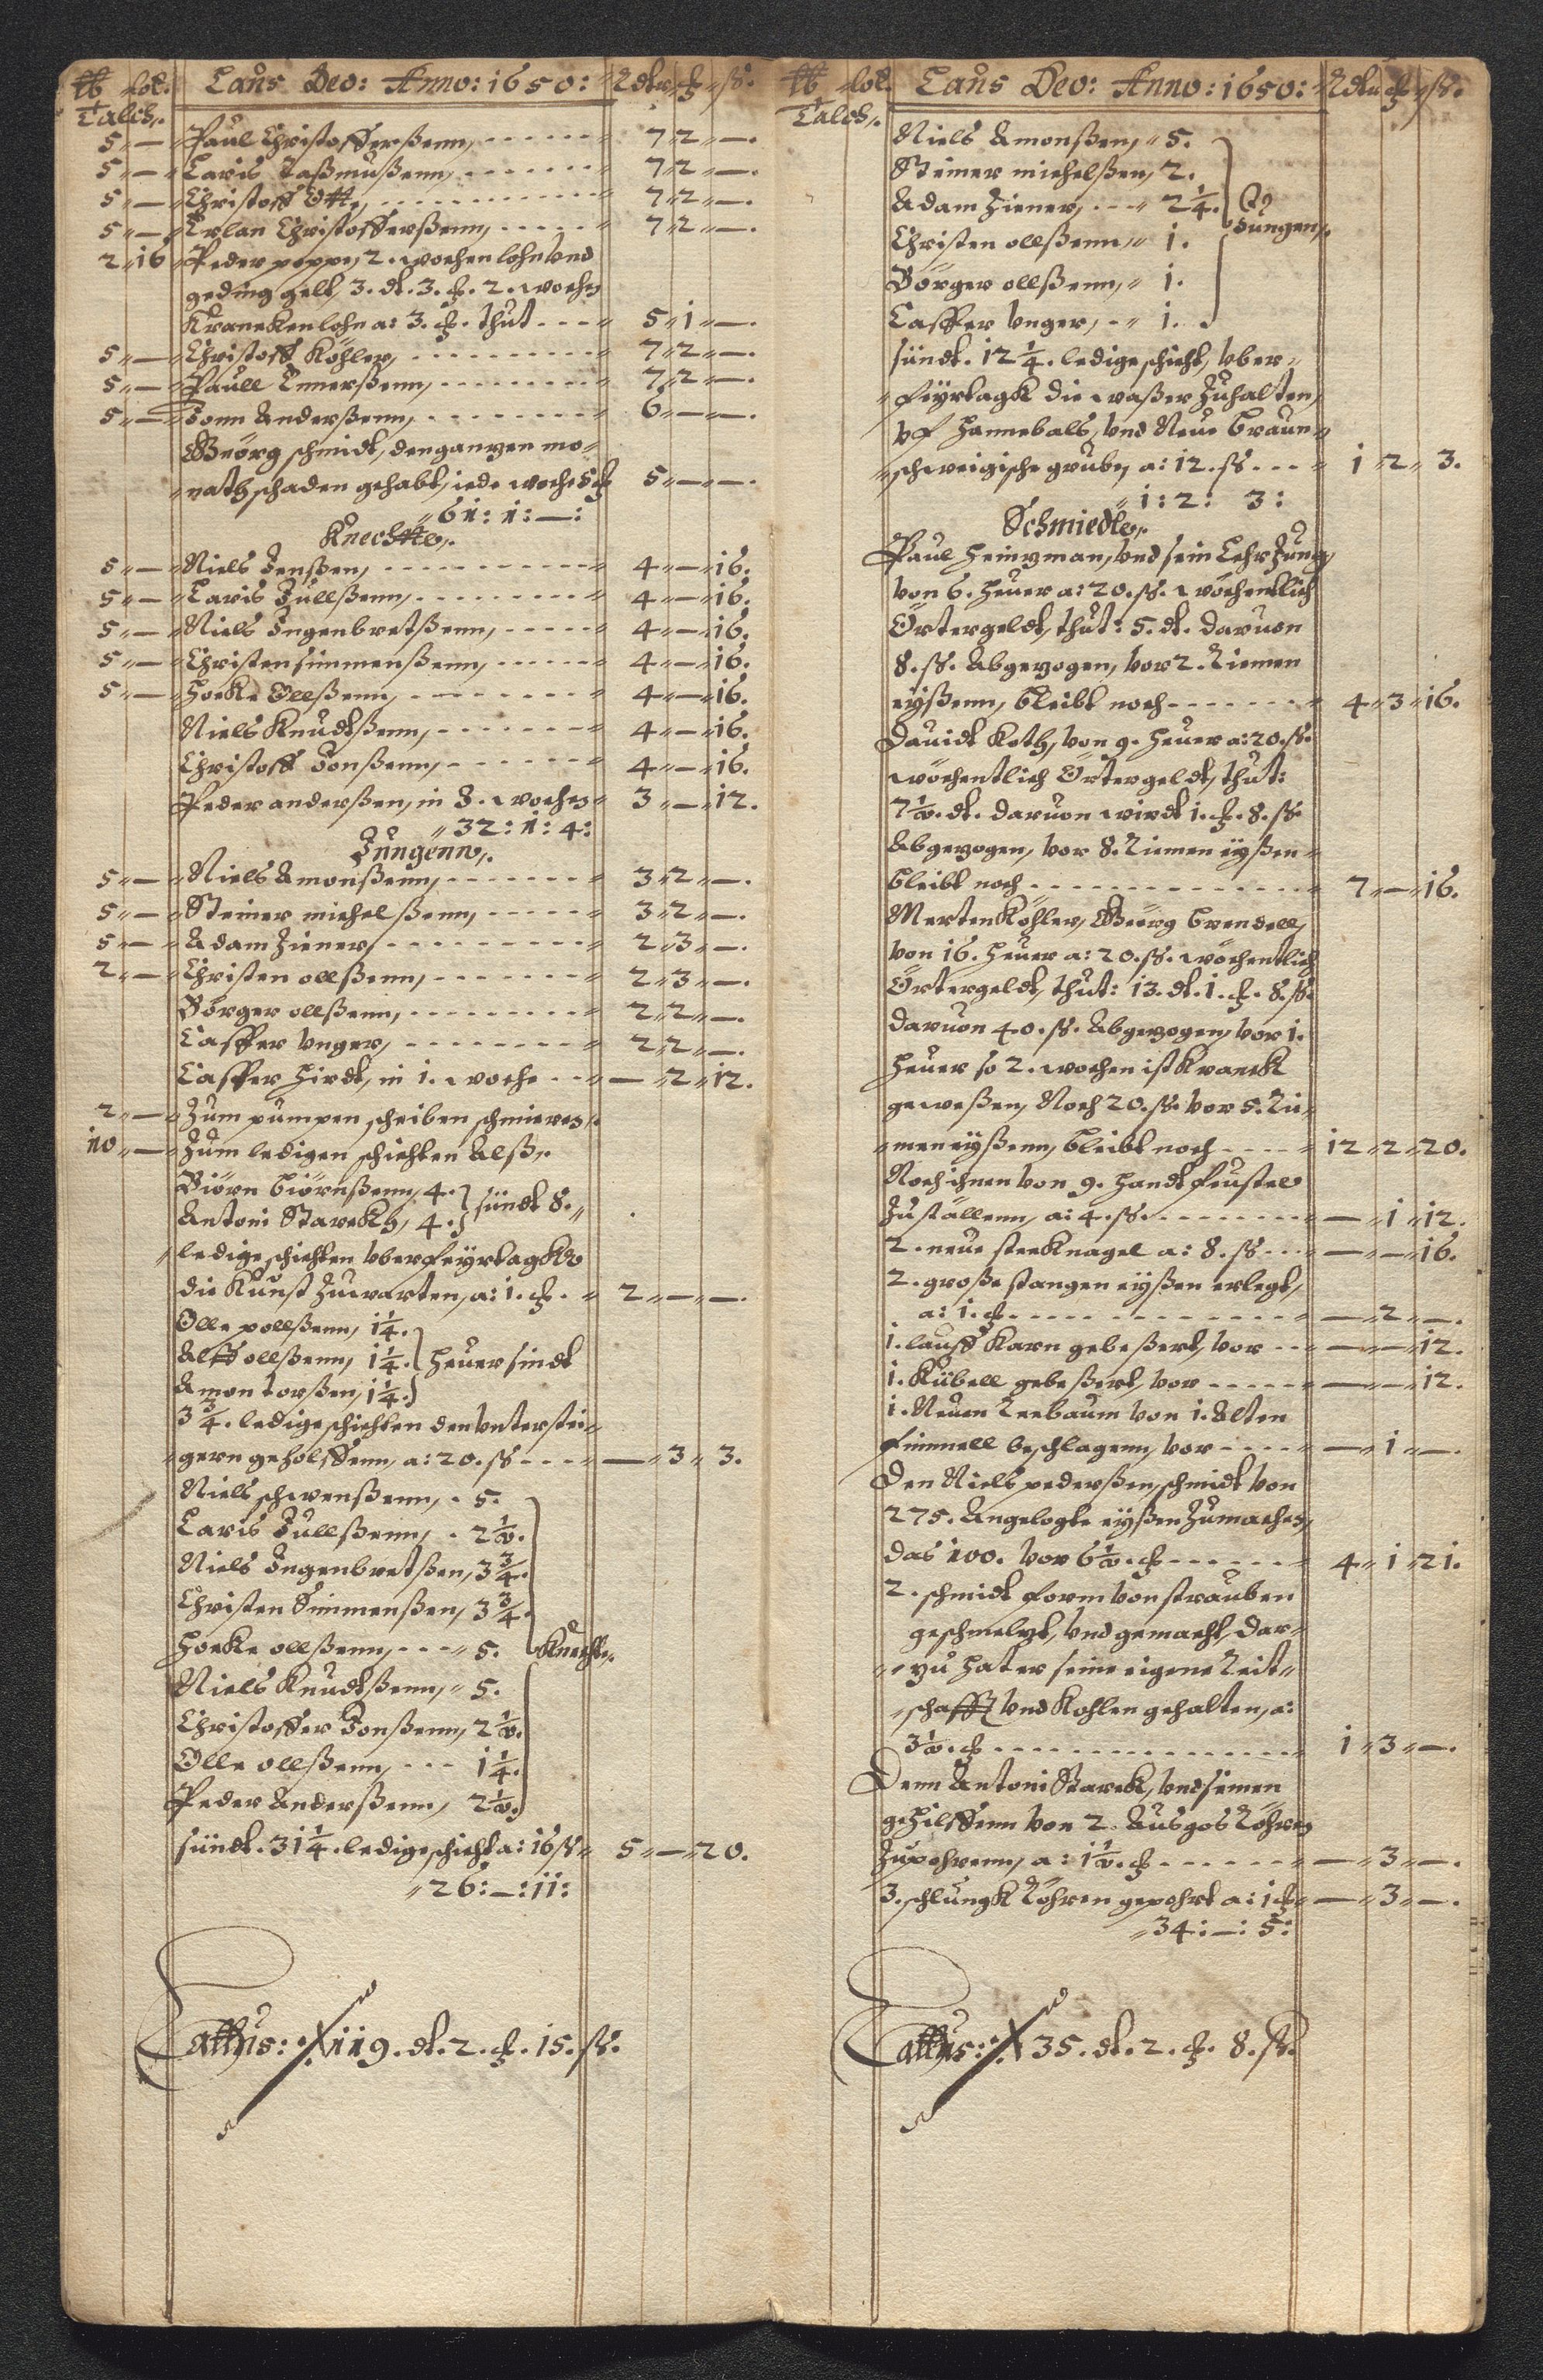 ℔ lot. Laus Deo: Anno: 1650: Rdtr ß.
Talch.
5 — Paul Christofferßenn, 7 2 —.
5 — Laris Raßmußenn, 7 2 —.
5 — Christoff Otte, 7 2 —.
5 — Erlan Christofferßenn, 7 2 —.
2 16 Peder poppe, 2. wochen lohn vnd
geding gelt, 3. dt. 3. 2. wochen
Krancken lohn a: 3. thut 5 1 —.
5 — Christoff Köhler, 7 2 —.
5 — Paull Ennerßenn, 7 2 —.
5 — Jonn Anderßenn, 6 — —.
Geörg schmidt, den gantzen mo-
nath schaden gehabt, iede woche 5 — —.
61: 1: —:
Knechte.
5 — Niels Jenßen, 4 — 16.
5 — Laris Jullßenn, 4 — 16.
5 — Niels Ingenbretßenn, 4 — 16.
5 — Christen simmenßenn, 4 — 16.
5 — Hocke Ollßenn, 4 — 16.
Niels Knudtßenn, 4 — 16.
Christoff Jonßenn, 4 — 16.
Peder anderßen, in 3. wochen 3 — 12.
32: 1: 4:
Jungenn.
5 — Niels Amonßenn, 3 2 —.
5 — Steiner michelßenn, 3 2 —.
5 — Adam Ziener, 2 3 —.
2 — Christen ollßenn, 2 3 —.
Börger ollßenn, 2 2 —.
Casper Vnger, 2 2 —.
Casper Hirdt, in 1. woche — 2 12.
2 — Zum pumpen scheiben schmieren.
10 — Zum ledigen schichten Alß.
Biörn Biörnßenn, 4.
Antoni Starckh, 4. sündt 8.
ledige schichten vber feyrtagke
die Kunst zuwarten, a: 1. 2 — —.
Olle pollßenn, 1¼.
Alff ollßenn, 1¼. Heuer sindt
Amon torßen, 1¼.
3¾. ledige schichten den vnterstei-
gern geholffenn, a: 20. ß — 3 3.
Niels schwenßenn, 5.
Laris Jullßenn, 2½.
Niels Ingenbretßen, 3¾.
Christen Simmenßen, 3¾.
Hocke ollßenn, 5. Knechte.
Niels Knudtßenn, 5.
Christoffer Jonßenn, 2½.
Olle ollßenn, 1¼.
Peder Anderßenn, 2½.
sündt. 31¼. ledige schicht a: 16 ß 5 — 20.
26: —: 11:
Lattus: 119. dt. 2. 15. ß.
℔ lot. Laus Deo: Anno: 1650: Rdtr ß.
Talch.
Niels Amonßen, 5.
Steiner michelßen, 2.
Adam Ziener, 2¼.
Jungen.
Christen ollßenn, 1.
Börger ollßenn, 1.
Casper Vnger, 1.
sündt. 12¼. ledige schicht, vber
feyrtagk die waßer zuhalten,
vf Hannebals, vnd Neue Braun-
schweigische grube, a: 12. ß 1 2 3.
1: 2: 3:
Schmiede.
Paul Heinzman, vnd sein Lehr Jung,
von 6. Heuer a: 20. ß. wöchentlich
Örtergeldt, thut: 5. dt. daruon
8. ß. Abgezogen, vor 2. Riemen
eyßenn, bleibt noch 4 3 16.
Dauidt Koth, von 9. Heuer a: 20. ß.
wöchentlich Örtergeldt, thut:
7½. dt. daruon wirdt 1. 8. ß.
Abgezogen, vor 8. Riemen eyßen
bleibt noch 7 — 16.
Merten Köhler, Geörg Brendell,
von 16. Heuer a: 20. ß. wöchentlich
Örtergeldt, thut: 13. dt. 1. 8. ß.
daruon 40. ß. Abgezogen, vor 1.
Heuer so 2. wochen ist Kranck
geweßen, Noch 20. ß. vor 5. Rie-
men eyßenn, bleibt noch 12 2 20.
Noch ihnen von 9. Handt feustel
zu ställenn, a: 4. ß. — 1 12.
2. neue stecknagel a: 8. ß — — 16.
2. große stangen eyßen erlegt,
a: 1. — 2 —.
1. lauff Karn gebeßert, vor — — 12.
1. Kübell gebeßert, vor — — 12.
1. Neuen Leebaum von 1. Alten
fimmell beschlagenn, vor — 1 —.
Den Niels pederßen, schmidt von
275. Angelogte eyßen zumachen,
das 100. vor 6½. 4 1 21.
2. schmidt form von strauben
geschmelzt, vnd gemacht, dar-
zu hat er seine eigene Reit-
schafft vnd Kohlen gehalten, a:
3½. 1 3 —.
Denn Antoni Starck, vnd seinen
gehilffenn von 2. Ausgos Röhren
zu pohrenn, a: 1½. — 3 —.
3. schlungk Röhren gepohrt a: 1 — 3 —.
34: —: 5:
Lattus: 35. dt. 2. 8. ß.